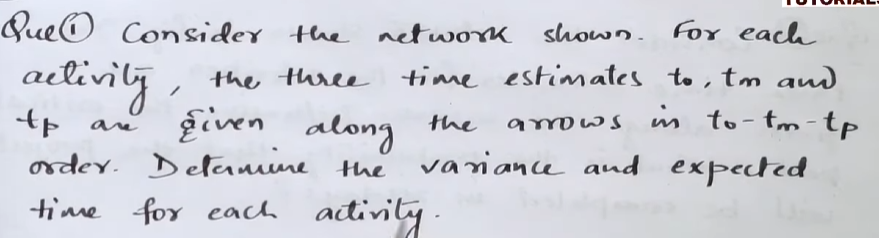 TUTORIALS
Que① Consider the network shown. For each
activity, the three time estimates to, tm and
tp are given along the arrows in to-tm-tp
order. Determine the variance and expected
time for each activity.